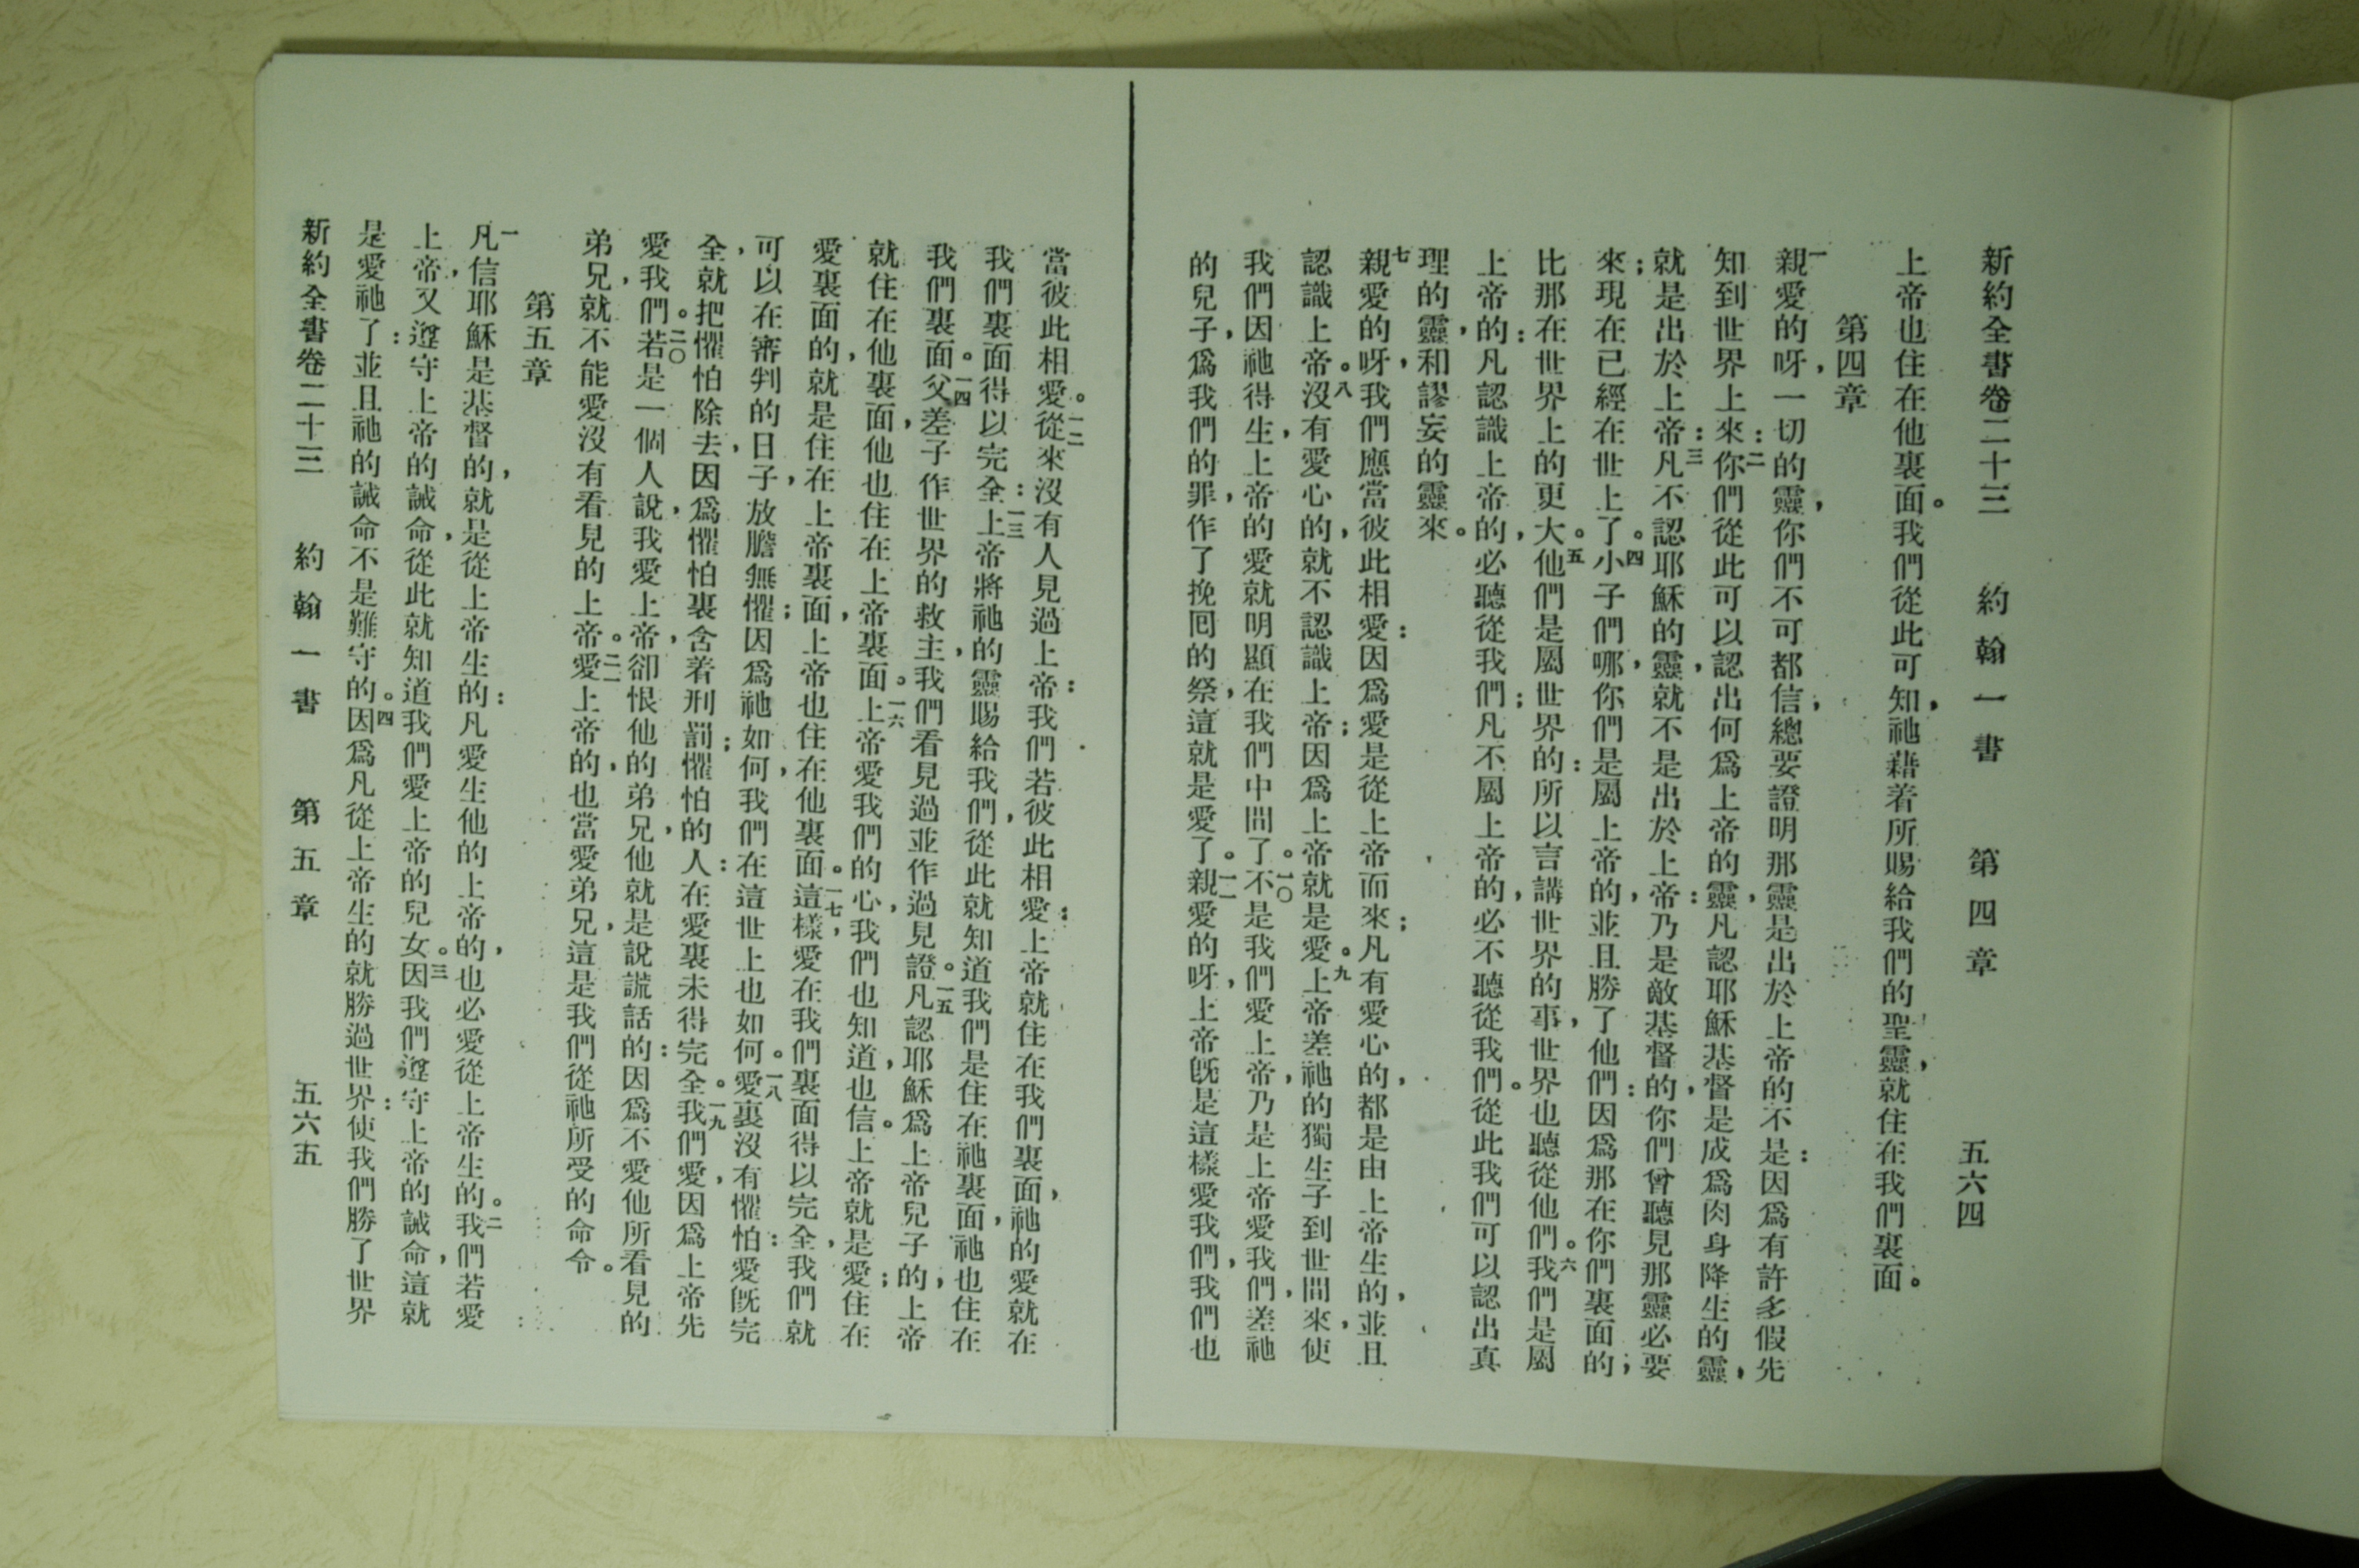 新約全書卷二十三 約翰一書 第四章 五六四
上帝也住在他裏面。我們從此可知,祂藉着所賜給我們的聖靈,就住在我們裏面。
第四章
一親愛的呀,一切的靈,你們不可都信;總要證明那靈是出於上帝的不是:因爲有許多假先
知到世界上來:二你們從此可以認出何爲上帝的靈,凡認耶穌基督是成爲肉身降生的靈,
就是出於上帝:三凡不認耶穌的靈,就不是出於上帝:乃是敵基督的,你們曾聽見那靈必要
來;現在已經在世上了。四小子們哪,你們是屬上帝的,並且勝了他們:因爲那在你們裏面的;
比那在世界上的更大。五他們是屬世界的:所以言講世界的事,世界也聽從他們。六我們是屬
上帝的:凡認識上帝的,必聽從我們;凡不屬上帝的,必不聽從我們。從此我們可以認出真
理的靈,和謬妄的靈來。
七親愛的呀,我們應當彼此相愛:因爲愛是從上帝而來;凡有愛心的,都是由上帝生的,並且
認識上帝。八沒有愛心的,就不認識上帝;因爲上帝就是愛。九上帝差祂的獨生子到世間來,使
我們因祂得生,上帝的愛就明顯在我們中間了。一〇不是我們愛上帝,乃是上帝愛我們,差祂
的兒子,爲我們的罪,作了挽回的祭,這就是愛了。一一親愛的呀,上帝旣是這樣愛我們,我們也
當彼此相愛。一二從來沒有人見過上帝:我們若彼此相愛:上帝就住在我們裏面,祂的愛就在
我們裏面得以完全:一三上帝將祂的靈賜給我們,從此就知道我們是住在祂裏面,祂也住在
我們裏面。一四父差子作世界的救主,我們看見過並作過見證。一五凡認耶穌爲上帝兒子的,上帝
就住在他裏面,他也住在上帝裏面。一六上帝愛我們的心,我們也知道,也信。上帝就是愛;住在
愛裏面的,就是住在上帝裏面,上帝也住在他裏面。一七這樣,愛在我們裏面得以完全,我們就
可以在審判的日子,放膽無懼;因爲祂如何,我們在這世上也如何。一八愛裏沒有懼怕:愛旣完
全,就把懼怕除去,因爲懼怕裏含着刑罰;懼怕的人:在愛裏未得完全。一九我們愛,因爲上帝先
愛我們。二〇若是一個人說,我愛上帝,卻恨他的弟兄,他就是說謊話的:因爲不愛他所看見的
弟兄,就不能愛沒有看見的上帝。二一愛上帝的,也當愛弟兄,這是我們從祂所受的命令。
第五章
一凡信耶穌是基督的,就是從上帝生的:凡愛生他的上帝的,也必愛從上帝生的。二我們若愛
上帝,又遵守上帝的誡命,從此就知道我們愛上帝的兒女。三因我們遵守上帝的誡命,這就
是愛祂了:並且祂的誡命不是難守的。四因爲凡從上帝生的就勝過世界:使我們勝了世界
新約全書卷二十三 約翰一書 第五章 五六五